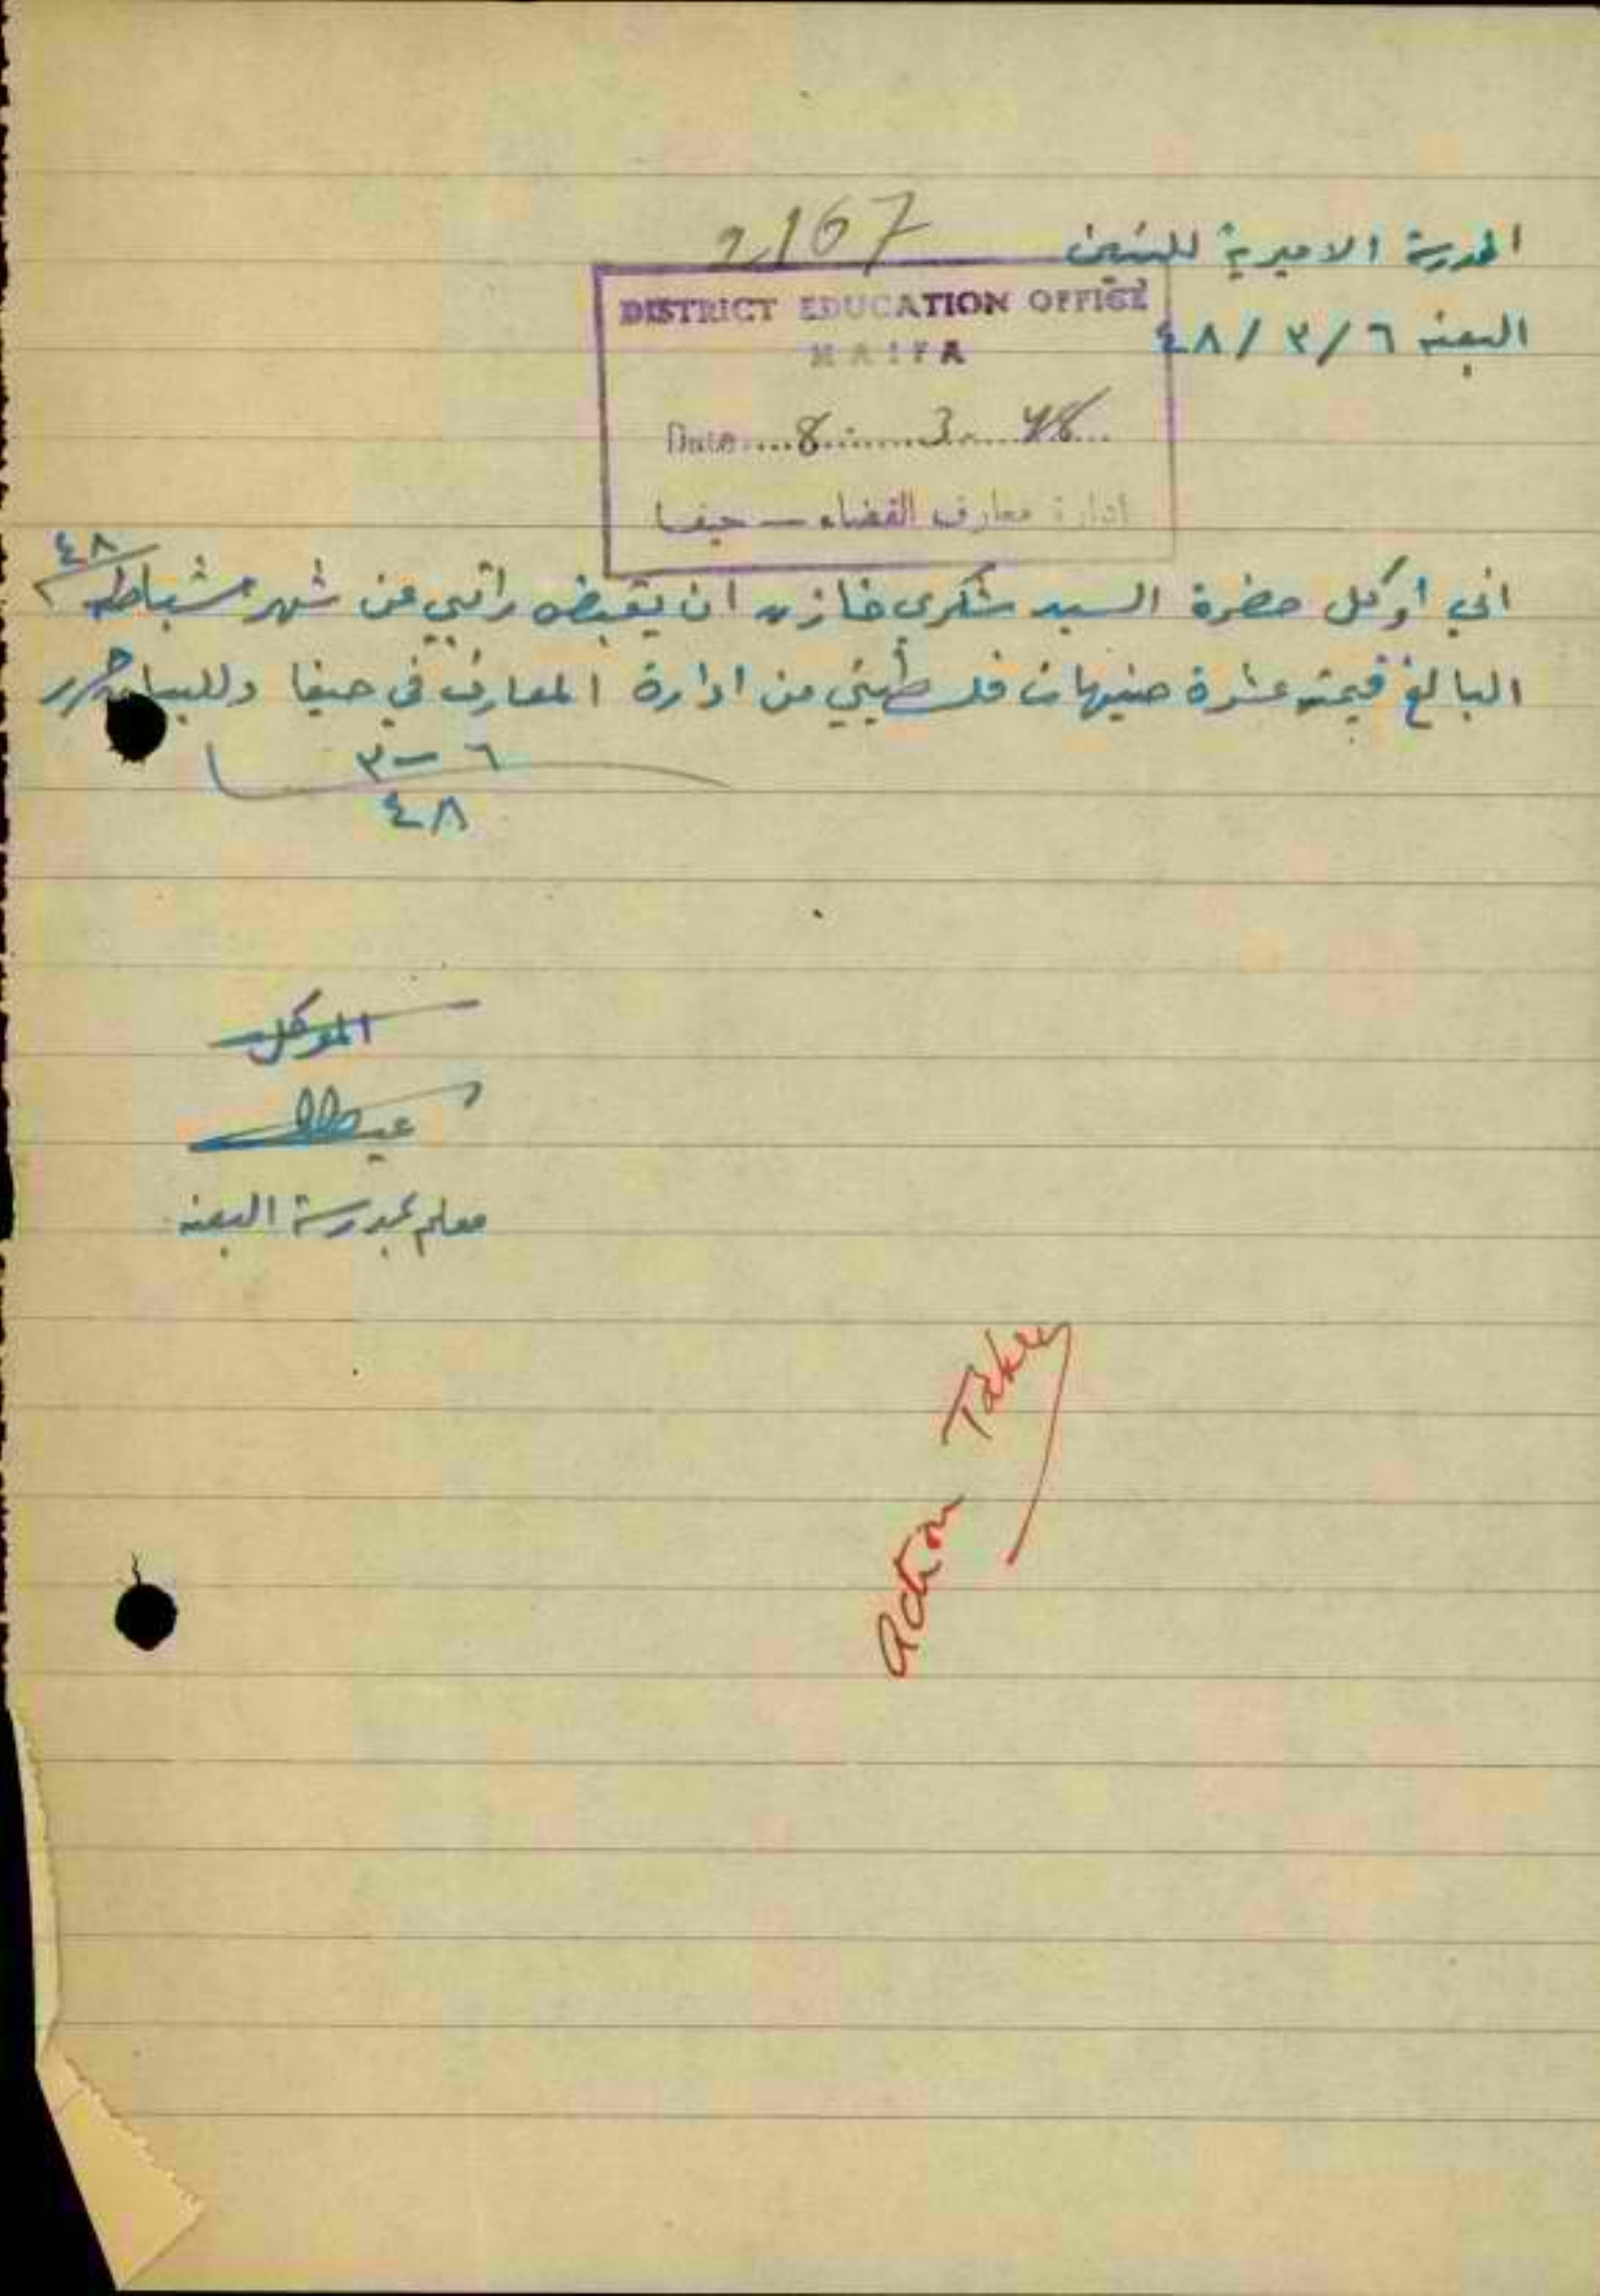 2167
المدرسة الاميرية للبنين
البعنه ٦/٣/٤٨
DISTRICT EDUCATION OFFICE
HAIFA
Date....8.........3.....48...
ادارة معارف القضاء — حيفا
اني اوكل حضرة السيد شكري خازن ان يقبض راتبي عن شهر شباط ٤٨
البالغ قيمته عشرة جنيهات فلسطيني من ادارة المعارف في حيفا وللبيان حرر
٦ – ٣
٤٨
الموكل
معلم بمدرسة البعنه
Action Taken